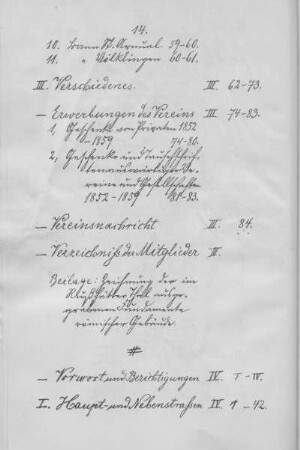 14.
10. Bann St. Arnual 59-60.
11. " Völklingen 60-61.
III. Verschiedenes. III. 62-73.
— Erwerbungen des Vereins III. 74-83.
1, Geschenke von Privaten 1852
-1859 74-80.
2, Geschenke und Tauschschrif-
ten auswärtiger Ve-
reine und Gesellschaften
1852-1859 81-83.
— Vereinsnachricht III. 84.
— Verzeichniß der Mitglieder III.
Beilage: Zeichnung der im
Thal ausge-
grabenen Fundamente
römischer Gebäude.
#
— Vorwort und Berichtigungen IV. I-IV.
I. Haupt- und Nebenstraßen IV. 1-42.